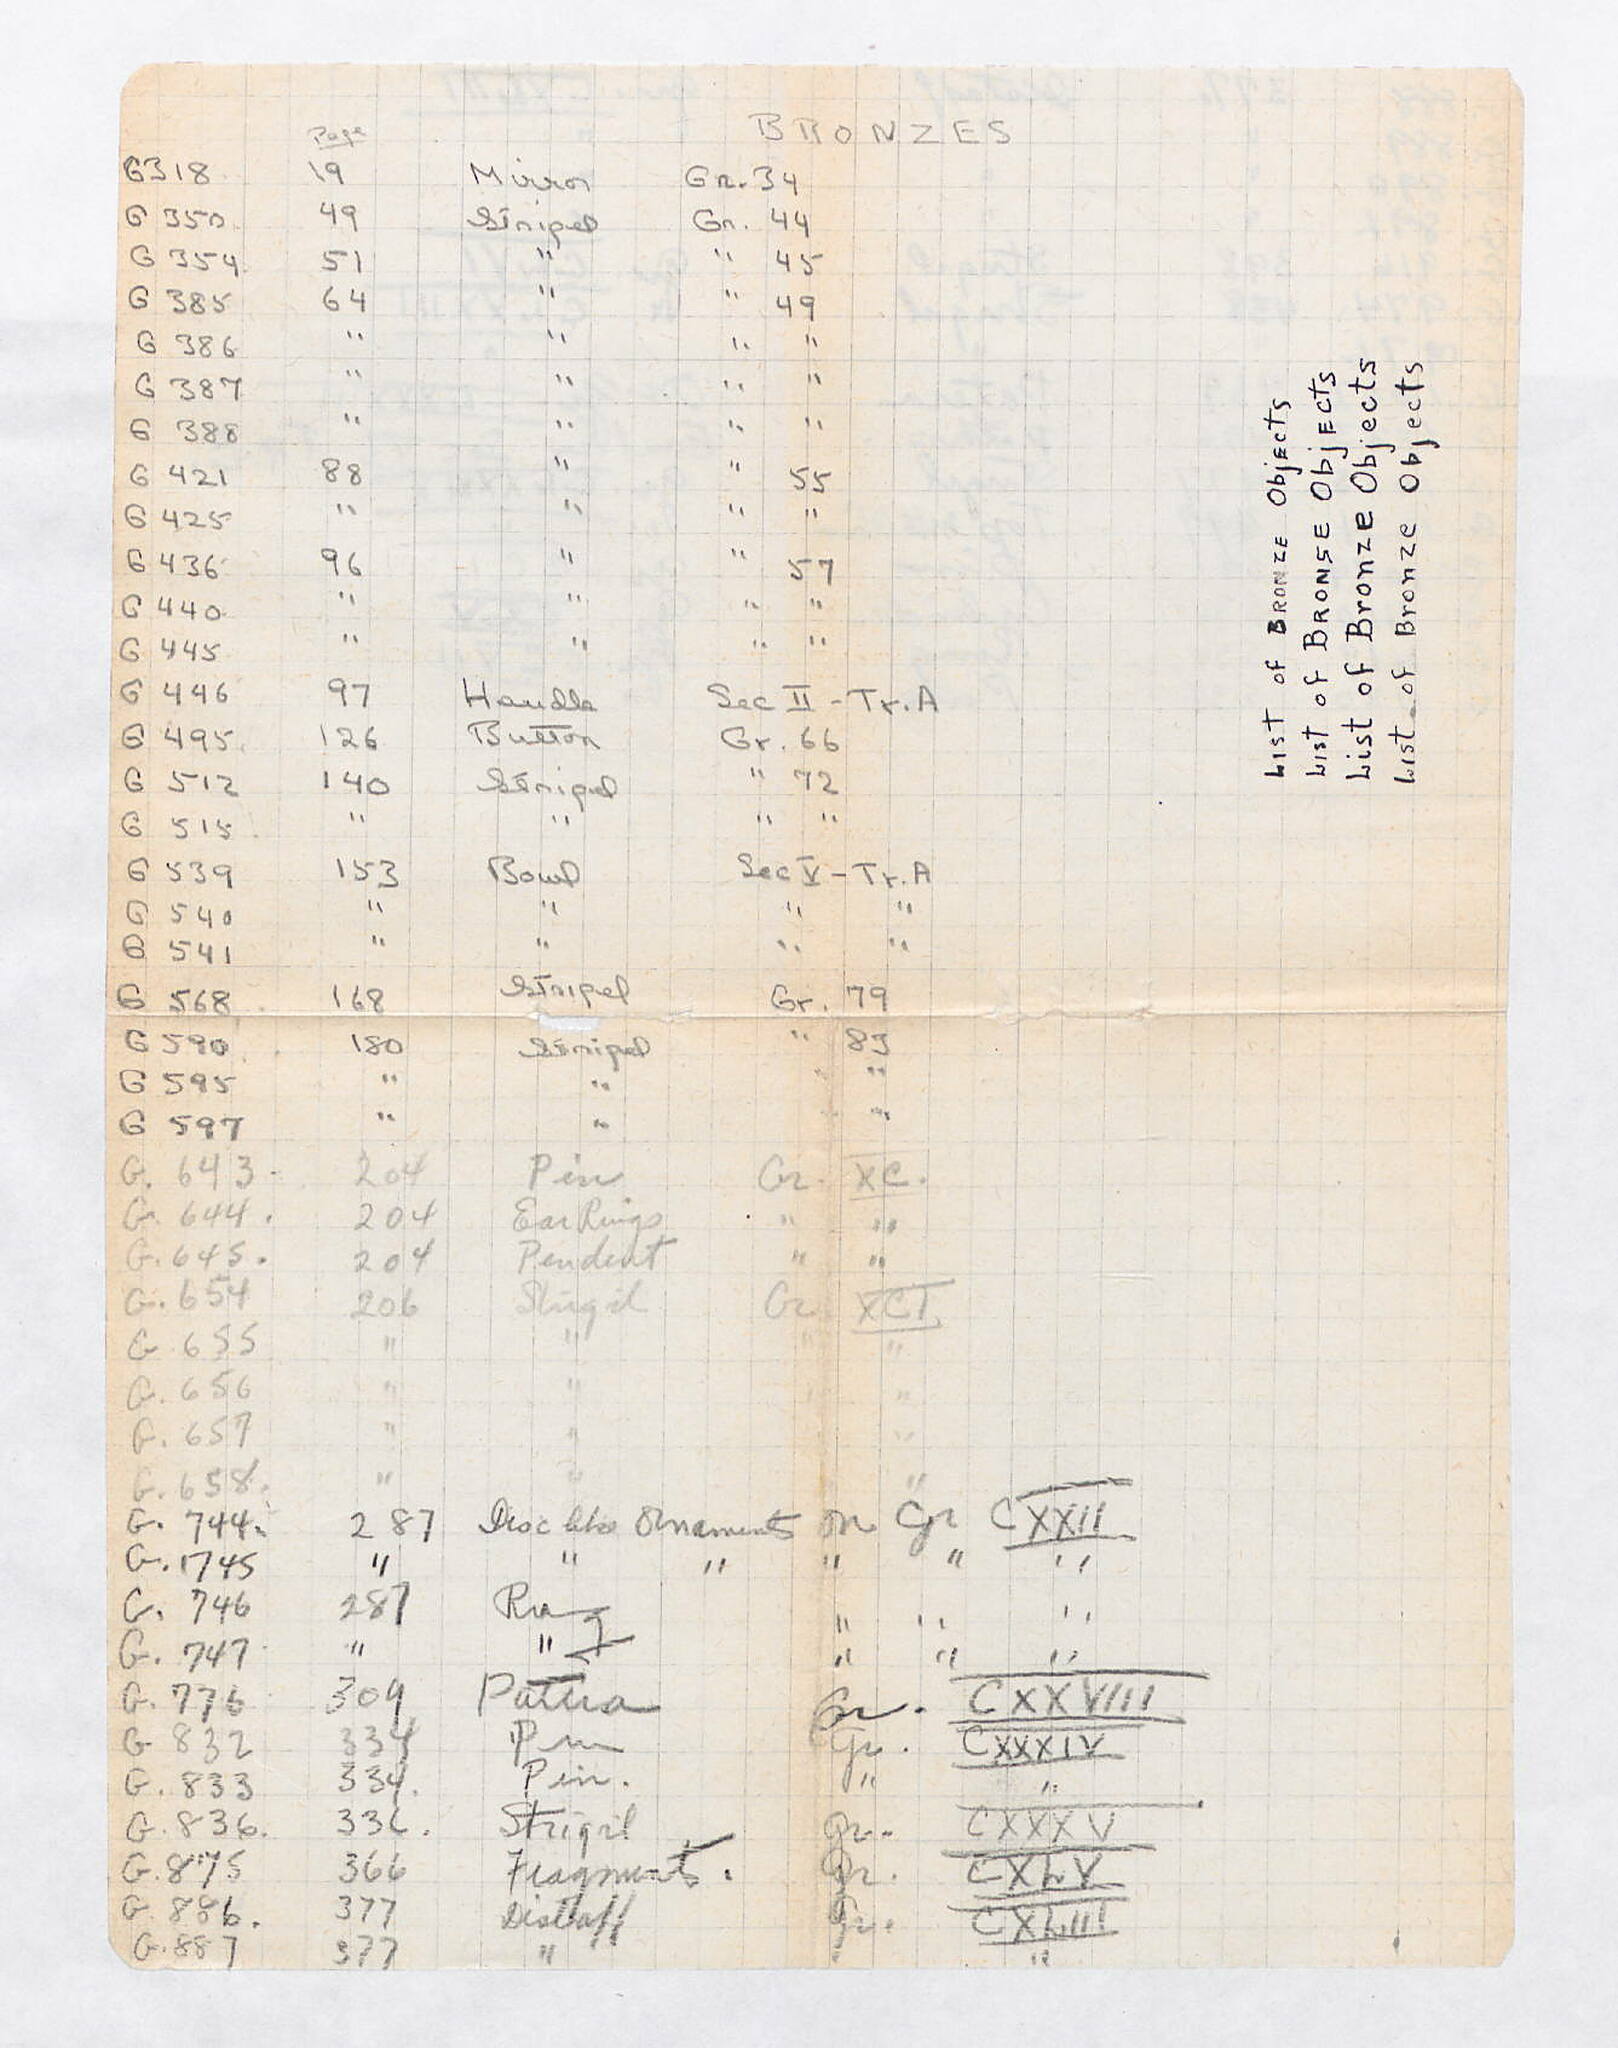 BRONZES
Page
G318 19 Mirror Gr. 34
G 350 49 Strigel Gr. 44
G 354 51 " " 45
G 385 64 " " 49
G 386 " " " "
G 387 " " " "
G 388 " " " "
G 421 88 " " 55
G 425 " " " "
G 436 96 " " 57
G 440 " " " "
G 445 " " " "
G 446 97 Handle Sec II - Tr. A
G 495 126 Button Gr. 66
G 512 140 Strigel " 72
G 515 " " " "
G 539 153 Bowl Sec V - Tr. A
G 540 " " " "
G 541 " " " "
G 568 168 Strigel Gr. 79
G 590 180 Strigel " 83
G 595 " " " "
G 597 " " " "
G. 643. 204 Pin Gr. XC.
G. 644. 204 Ear Rings " "
G. 645. 204 Pendent " "
G. 654 206 Strigil Gr XCI
G. 655 " " " "
G. 656 " " "
G. 657 " " "
G. 658. " " "
G. 744. 287 Disc like Ornaments on Gr CXXII
G. 1745 " " " " " "
G. 746 287 Ring " " "
G. 747 " " " " "
G. 776 309 Patera Gr. CXXVIII
G 832 334 Pin Gr. CXXXIV
G. 833 334. Pin. " "
G. 836. 336. Strigil Gr. CXXXV
G. 875 366 Fragments. Gr. CXLV
G. 886. 377 Distaff Gr. CXLIII
G. 887 377 " " "
List of BRONZE ObjEcts
List of BRONSE ObjECts
List of Bronze Objects
List of Bronze Objects